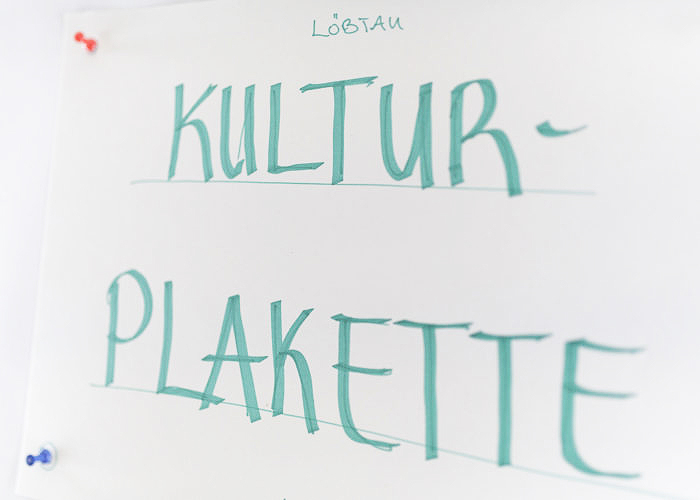 LÖBTAU
KULTUR-
PLAKETTE